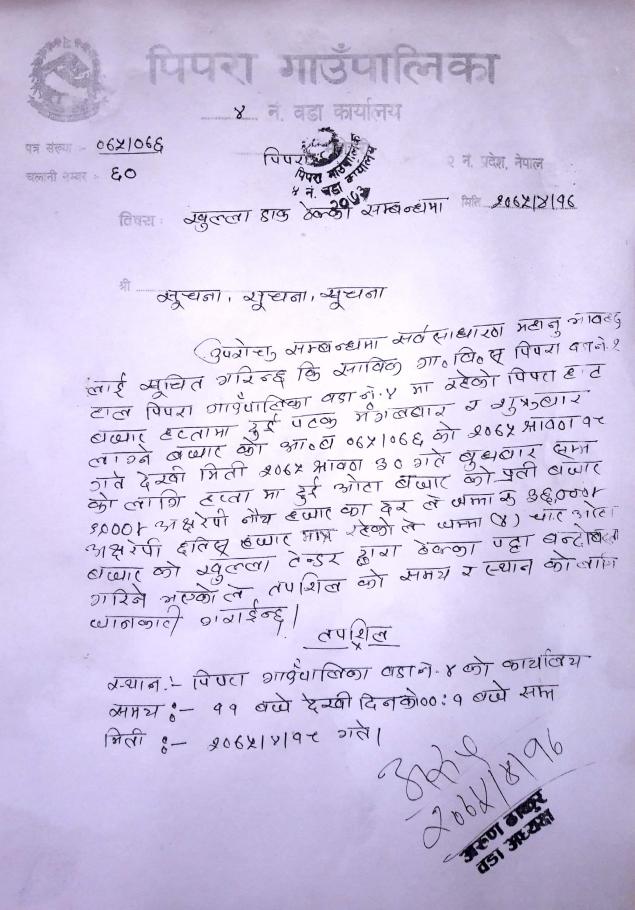 पिपरा गाउँपालिका
४ नं. वडा कार्यालय
पत्र संख्या :- ०७५/०७६
पिपरा
पिपरा गाउँपालिका
४ नं. वडा कार्यालय
२०७३
२ नं. प्रदेश, नेपाल
चलानी नम्बर :- ६०
मिति २०७५/४/१६
विषय: खुल्ला डाक ठेक्का सम्बन्धमा
श्री सूचना, सूचना, सूचना
उपरोक्त सम्बन्धमा सर्व साधारण महानु भावहरु
लाई सूचित गरिन्छ कि साविक गा॰वि॰स पिपरा वडा नं-१
हाल पिपरा गाउँपालिका वडा नं-४ मा रहेको पिपरा हाट
बजार हप्तामा दुई पटक मंगलबार र शुक्रबार
लाग्ने बजार को आ॰व ०७५/०७६ को २०७५ श्रावण १८
गते देखी मिती २०७५ श्रावण ३० गते बुधबार सम्म
को लागि हप्ता मा दुई ओटा बजार को प्रती बजार
९,०००/ अक्षरेपी नौ हजार का दर ले जम्मा रू ३६,०००/
अक्षरेपी छतिस् हजार मात्र रहेको ले जम्मा (४) चार ओटा
बजार को खुल्ला टेन्डर द्वारा ठेक्का पट्टा बन्दोबस्त
गरिने भएको ले तपशिल को समय र स्थान को लागि
जानकारी गराईन्छ।
तपश्िल
स्थान :- पिपरा गाउँपालिका वडा नं- ४ को कार्यालय
समय :- ११ बजे देखी दिनको ०० : १ बजे सम्म
मिती :- २०७५/४/१८ गते।
२०७५/४/१६
अरुण ठाकुर
वडा अध्यक्ष